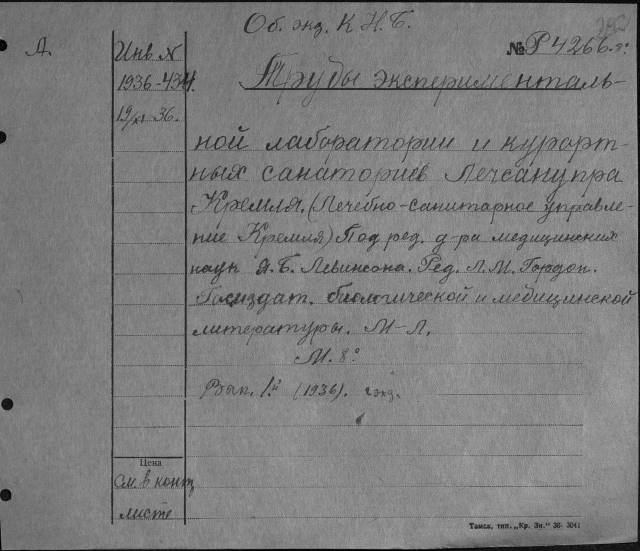 Об. экз. К Н. Б.
Д.
Инв N
1936-434.
19/XI-36.
№ Р4266.
Труды эксперименталь-
ной лаборатории и курорт-
ных санаториев Лечсанупра
Кремля. (Лечебно-санитарное управле-
ние Кремля) Под ред. д-ра медицинских
наук Я. Б. Левинсона. Ред. Л. М. Гордон.
Госиздат. биологической и медицинской
литературы. М-Л.
М. 8°
Вып. 1й (1936). экз.
Цена
см. в конт
листе
Тамск, тип. „Кр. Зн." 36- 3041